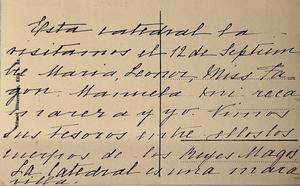 Esta catedral la
visitamos el 12 de Septiem
bre Maria, Leonor, Miss Fa
gon. Manuela mi reca
marera y yo. Vimos
sus tesoros entre ellos los
cuerpos de los Reyes Magos
La Catedral es una mara
villa.